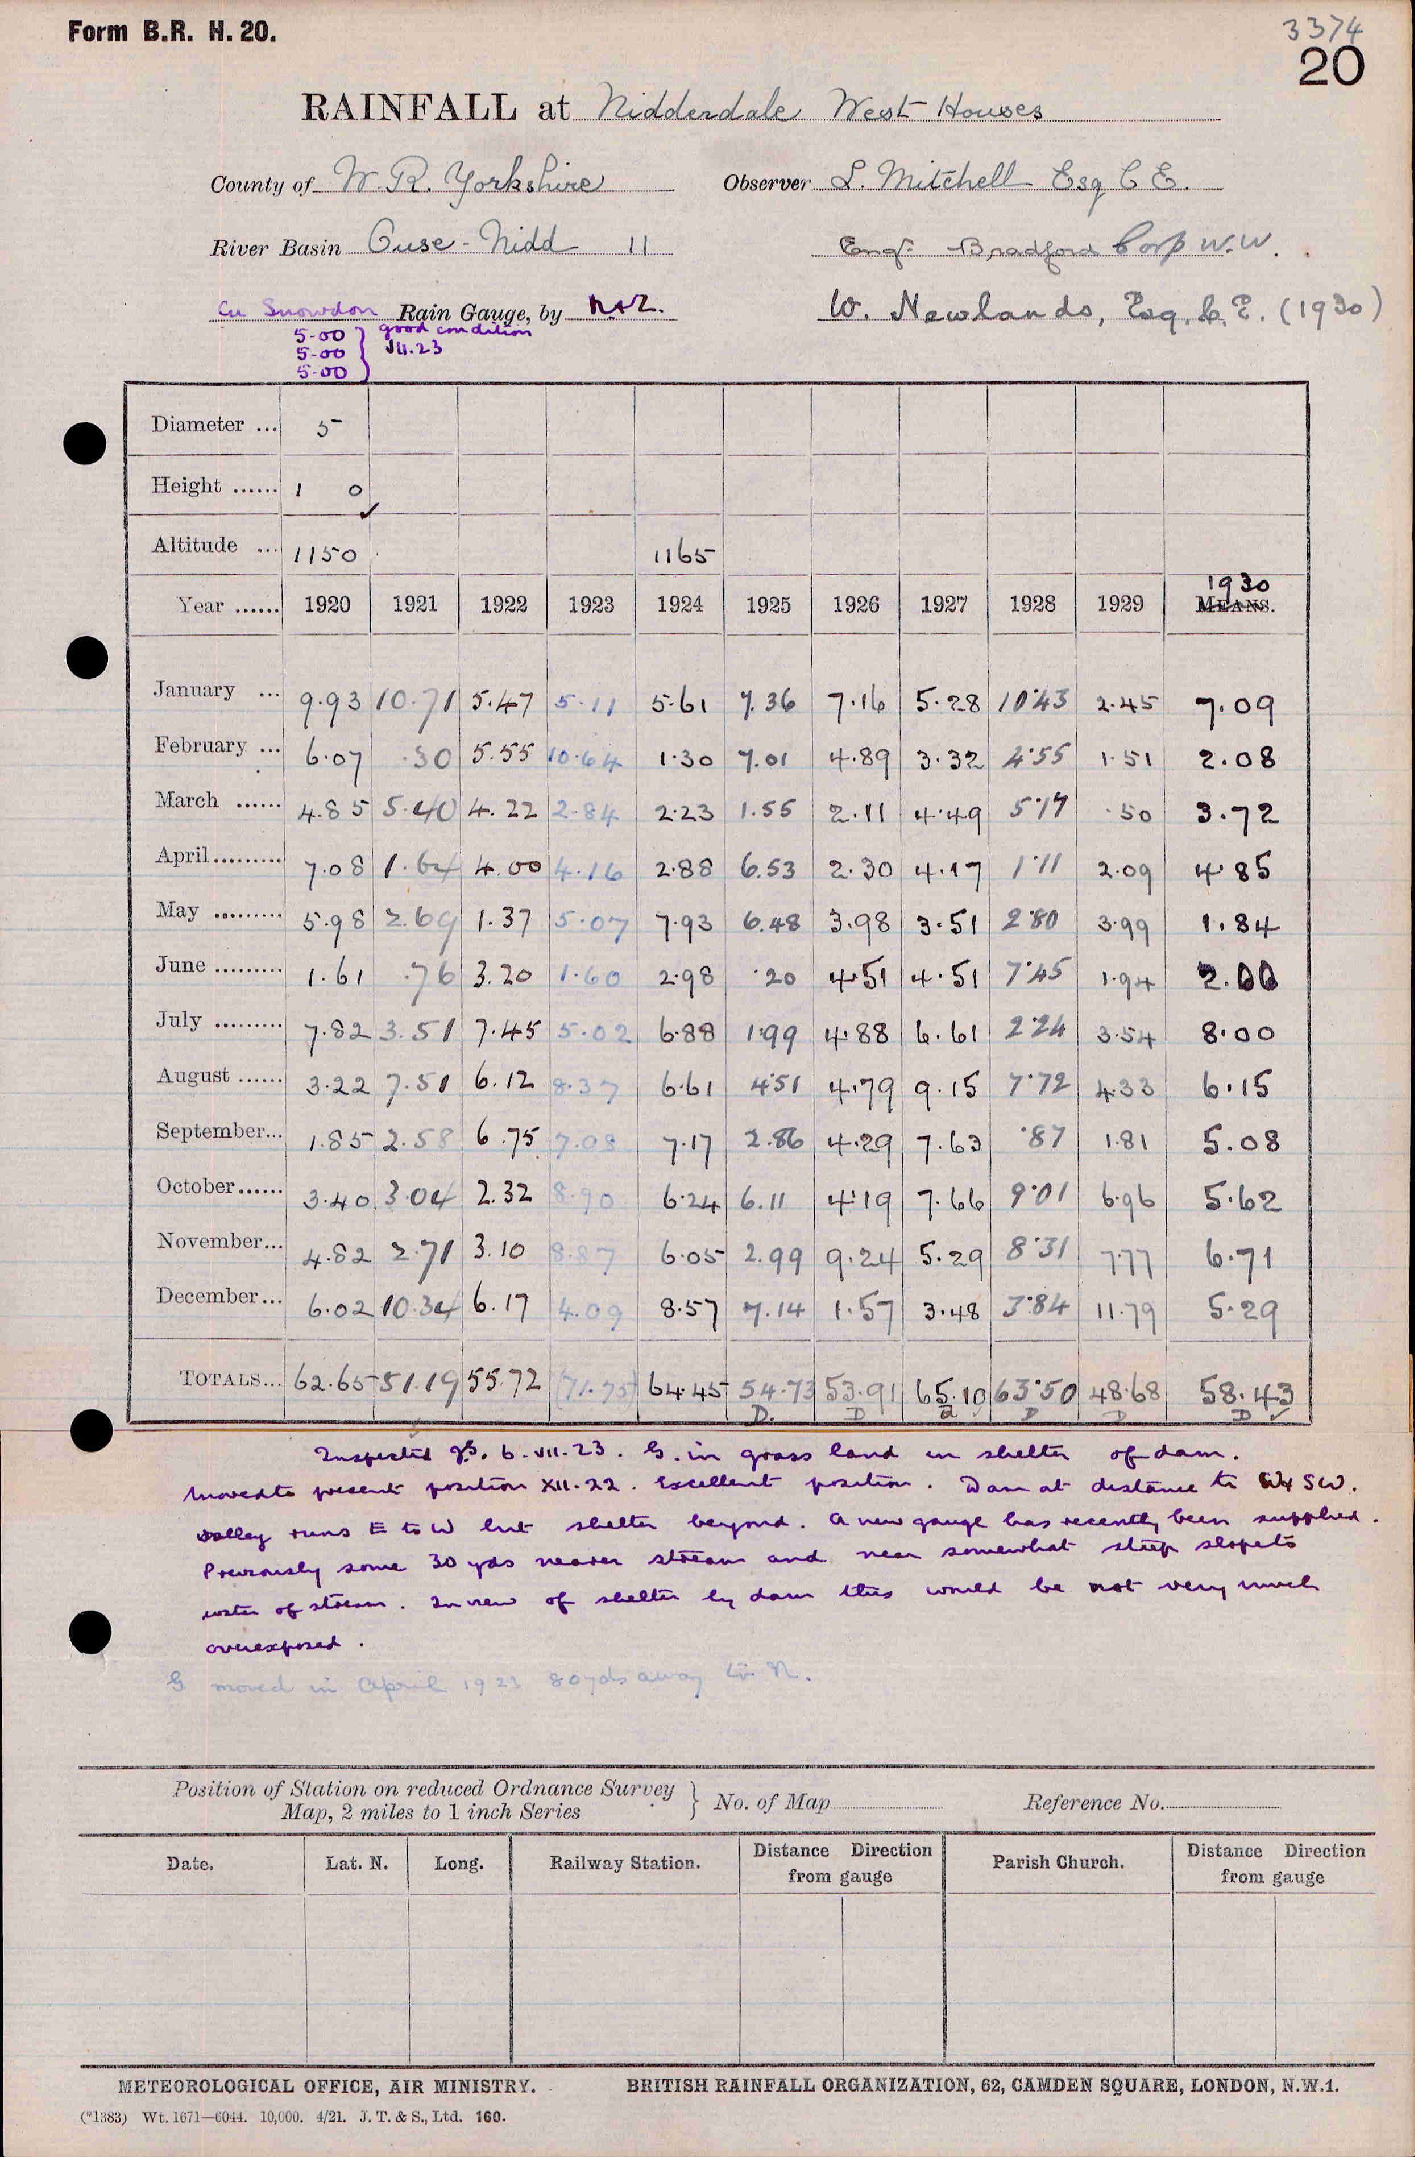 Form B.R. H. 20.
3374
20
RAINFALL at Nidderdale West Houses
County of W. R. Yorkshire Observer L. Mitchell Esq C E.
River Basin Ouse - Nidd 11 Engr. Bradford Corp W.W.
Cu Snowdon Rain Gauge, by N&Z. W. Newlands, Esq. C. E. (1930)
5.00 } good condition
5.00 VII.23
5.00
Diameter ... 5
Height ...... 1 0
Altitude ... 1150 1165
Year ...... 1920 1921 1922 1923 1924 1925 1926 1927 1928 1929 1930 MEANS.
January ... 9.93 10.71 5.47 5.11 5.61 7.36 7.16 5.28 10.43 2.45 7.09
February ... 6.07 .30 5.55 10.64 1.30 7.01 4.89 3.32 4.55 1.51 2.08
March ...... 4.85 5.40 4.22 2.84 2.23 1.55 2.11 4.49 5.17 .50 3.72
April ......... 7.08 1.64 4.00 4.16 2.88 6.53 2.30 4.17 1.11 2.09 4.85
May ......... 5.98 2.69 1.37 5.07 7.93 6.48 3.98 3.51 2.80 3.99 1.84
June ......... 1.61 .76 3.20 1.60 2.98 .20 4.51 4.51 7.45 1.94 2.00
July ......... 7.82 3.51 7.45 5.02 6.88 1.99 4.88 6.61 2.24 3.54 8.00
August ...... 3.22 7.51 6.12 8.37 6.61 4.51 4.79 9.15 7.72 4.33 6.15
September... 1.85 2.58 6.75 7.08 7.17 2.86 4.29 7.63 .87 1.81 5.08
October...... 3.40 3.04 2.32 8.90 6.24 6.11 4.19 7.66 9.01 6.96 5.62
November... 4.82 2.71 3.10 8.87 6.05 2.99 9.24 5.29 8.31 7.77 6.71
December... 6.02 10.34 6.17 4.09 8.57 7.14 1.57 3.48 3.84 11.79 5.29
TOTALS... 62.65 51.19 55.72 (71.75) 64.45 54.73 53.91 65.10 63.50 48.68 58.43
D. D D D D D
Inspected 6.VII.23. G. in grass land in shelter of dam.
Moved to present position XII.22. Excellent position. Dam at distance to SW.
Valley runs E to W but shelter beyond. A new gauge has recently been supplied.
Previously some 30 yds nearer stream and near somewhat steep slope to
water of stream. In view of shelter by dam this would be not very much
overexposed.
G moved in April 1923 80yds away to N.
Position of Station on reduced Ordnance Survey
Map, 2 miles to 1 inch Series } No. of Map Reference No.
Date. Lat. N. Long. Railway Station. Distance Direction from gauge Parish Church. Distance Direction from gauge
METEOROLOGICAL OFFICE, AIR MINISTRY. BRITISH RAINFALL ORGANIZATION, 62, CAMDEN SQUARE, LONDON, N.W.1.
(*1383) Wt. 1671—6044. 10,000. 4/21. J. T. & S., Ltd. 160.